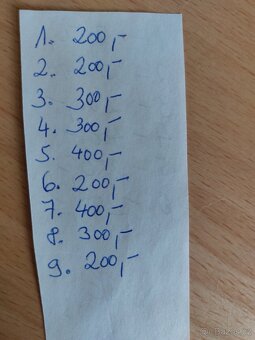 1. 200,-
2. 200,-
3. 300,-
4. 300,-
5. 400,-
6. 200,-
7. 400,-
8. 300,-
9. 200,-